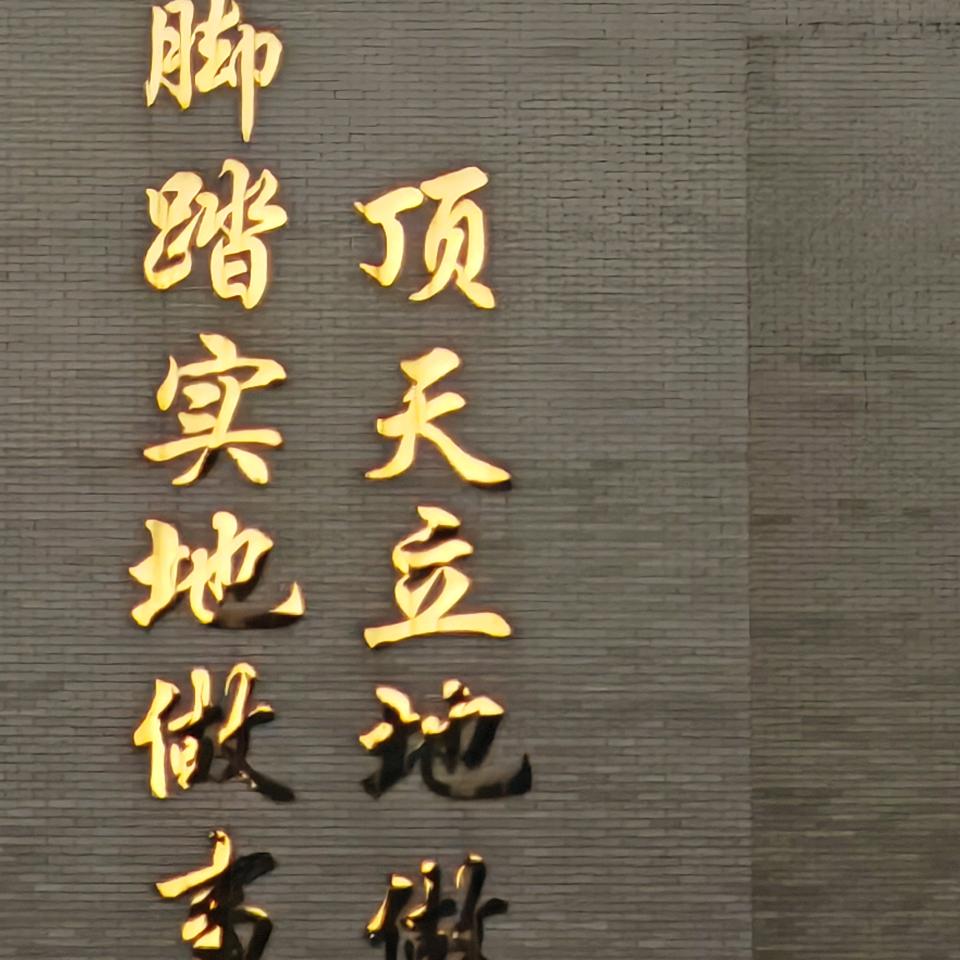 顶天立地做
脚踏实地做事